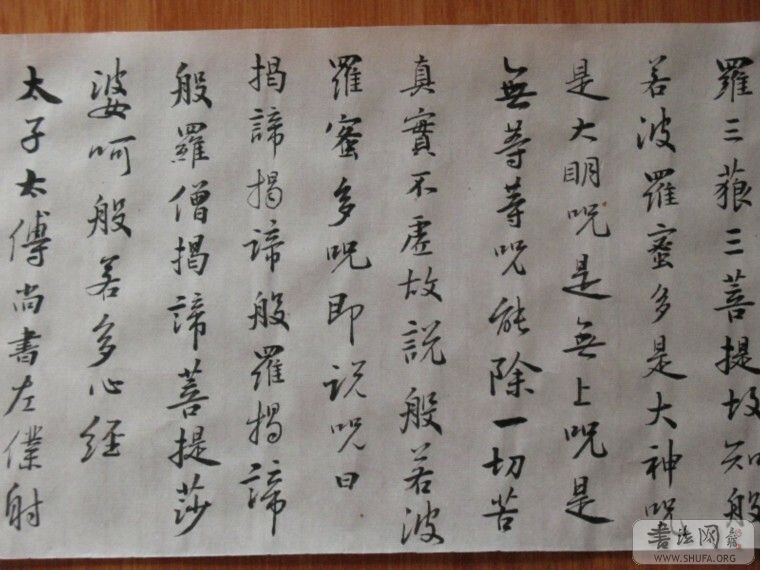 羅三藐三菩提故知般
若波羅蜜多是大神咒
是大明咒是無上咒是
無等等咒能除一切苦
真實不虛故說般若波
羅蜜多咒即說咒曰
揭諦揭諦般羅揭諦
般羅僧揭諦菩提莎
婆呵般若多心經
太子太傅尚書左僕射
書法网
WWW.SHUFA.ORG